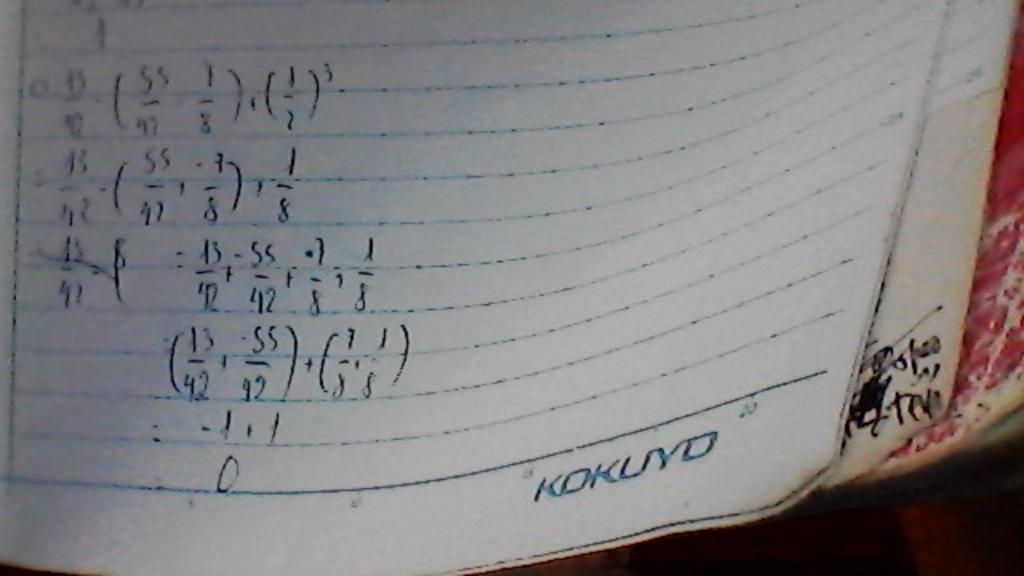 1
13/42 - (55/42 - 7/8) + (1/2)^3
= 13/42 - (55/42 + -7/8) + 1/8
13/42 - ( = 13/42 + -55/42 + 7/8 + 1/8
(13/42 + -55/42) + (7/8 + 1/8)
= -1 + 1
= 0
KOKUYO